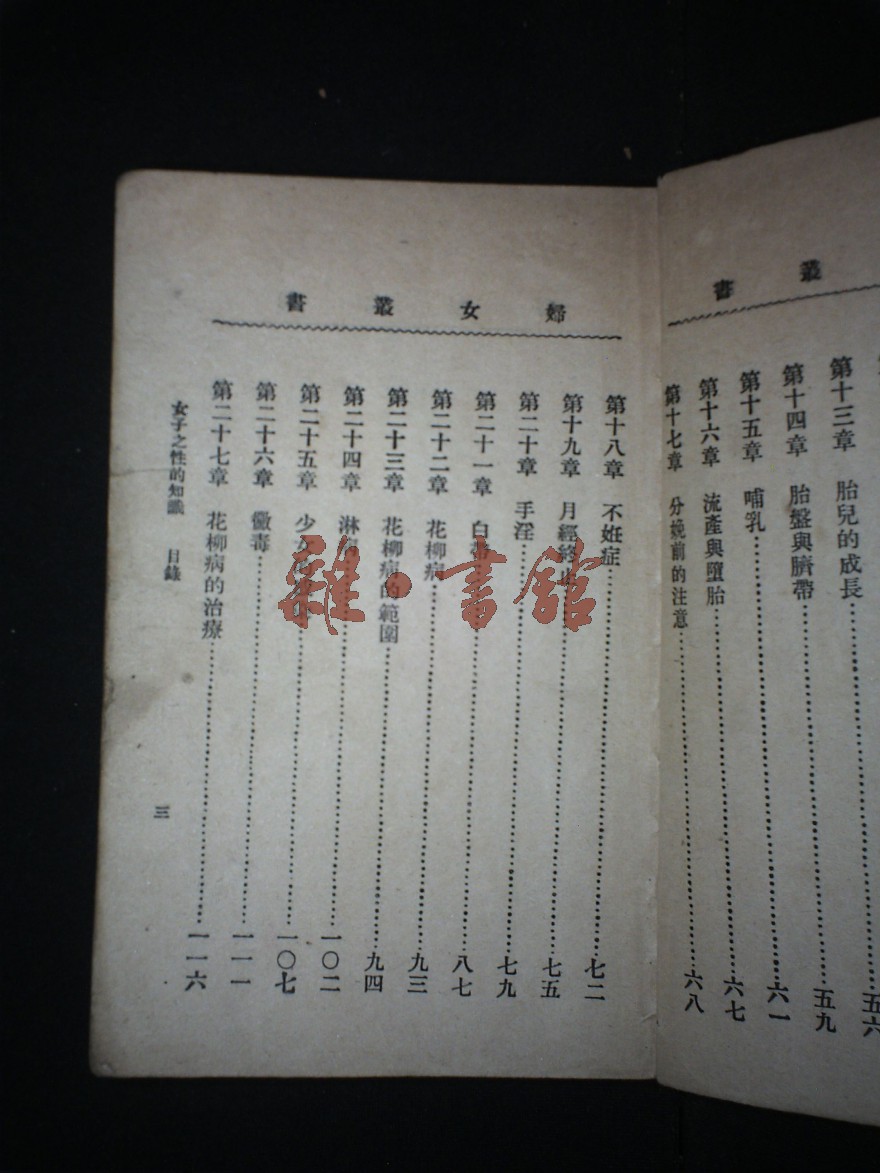 叢書
第十三章 胎兒的成長……五六
第十四章 胎盤與臍帶……五九
第十五章 哺乳……六一
第十六章 流產與墮胎……六七
第十七章 分娩前的注意……六八
婦女叢書
第十八章 不妊症……七二
第十九章 月經終止……七五
第二十章 手淫……七九
第二十一章 白帶……八七
第二十二章 花柳病……九三
第二十三章 花柳病的範圍……九四
第二十四章 淋病……一〇二
第二十五章 少女……一〇七
第二十六章 黴毒……一一一
第二十七章 花柳病的治療……一一六
女子之性的知識 目錄
三
雜·書館